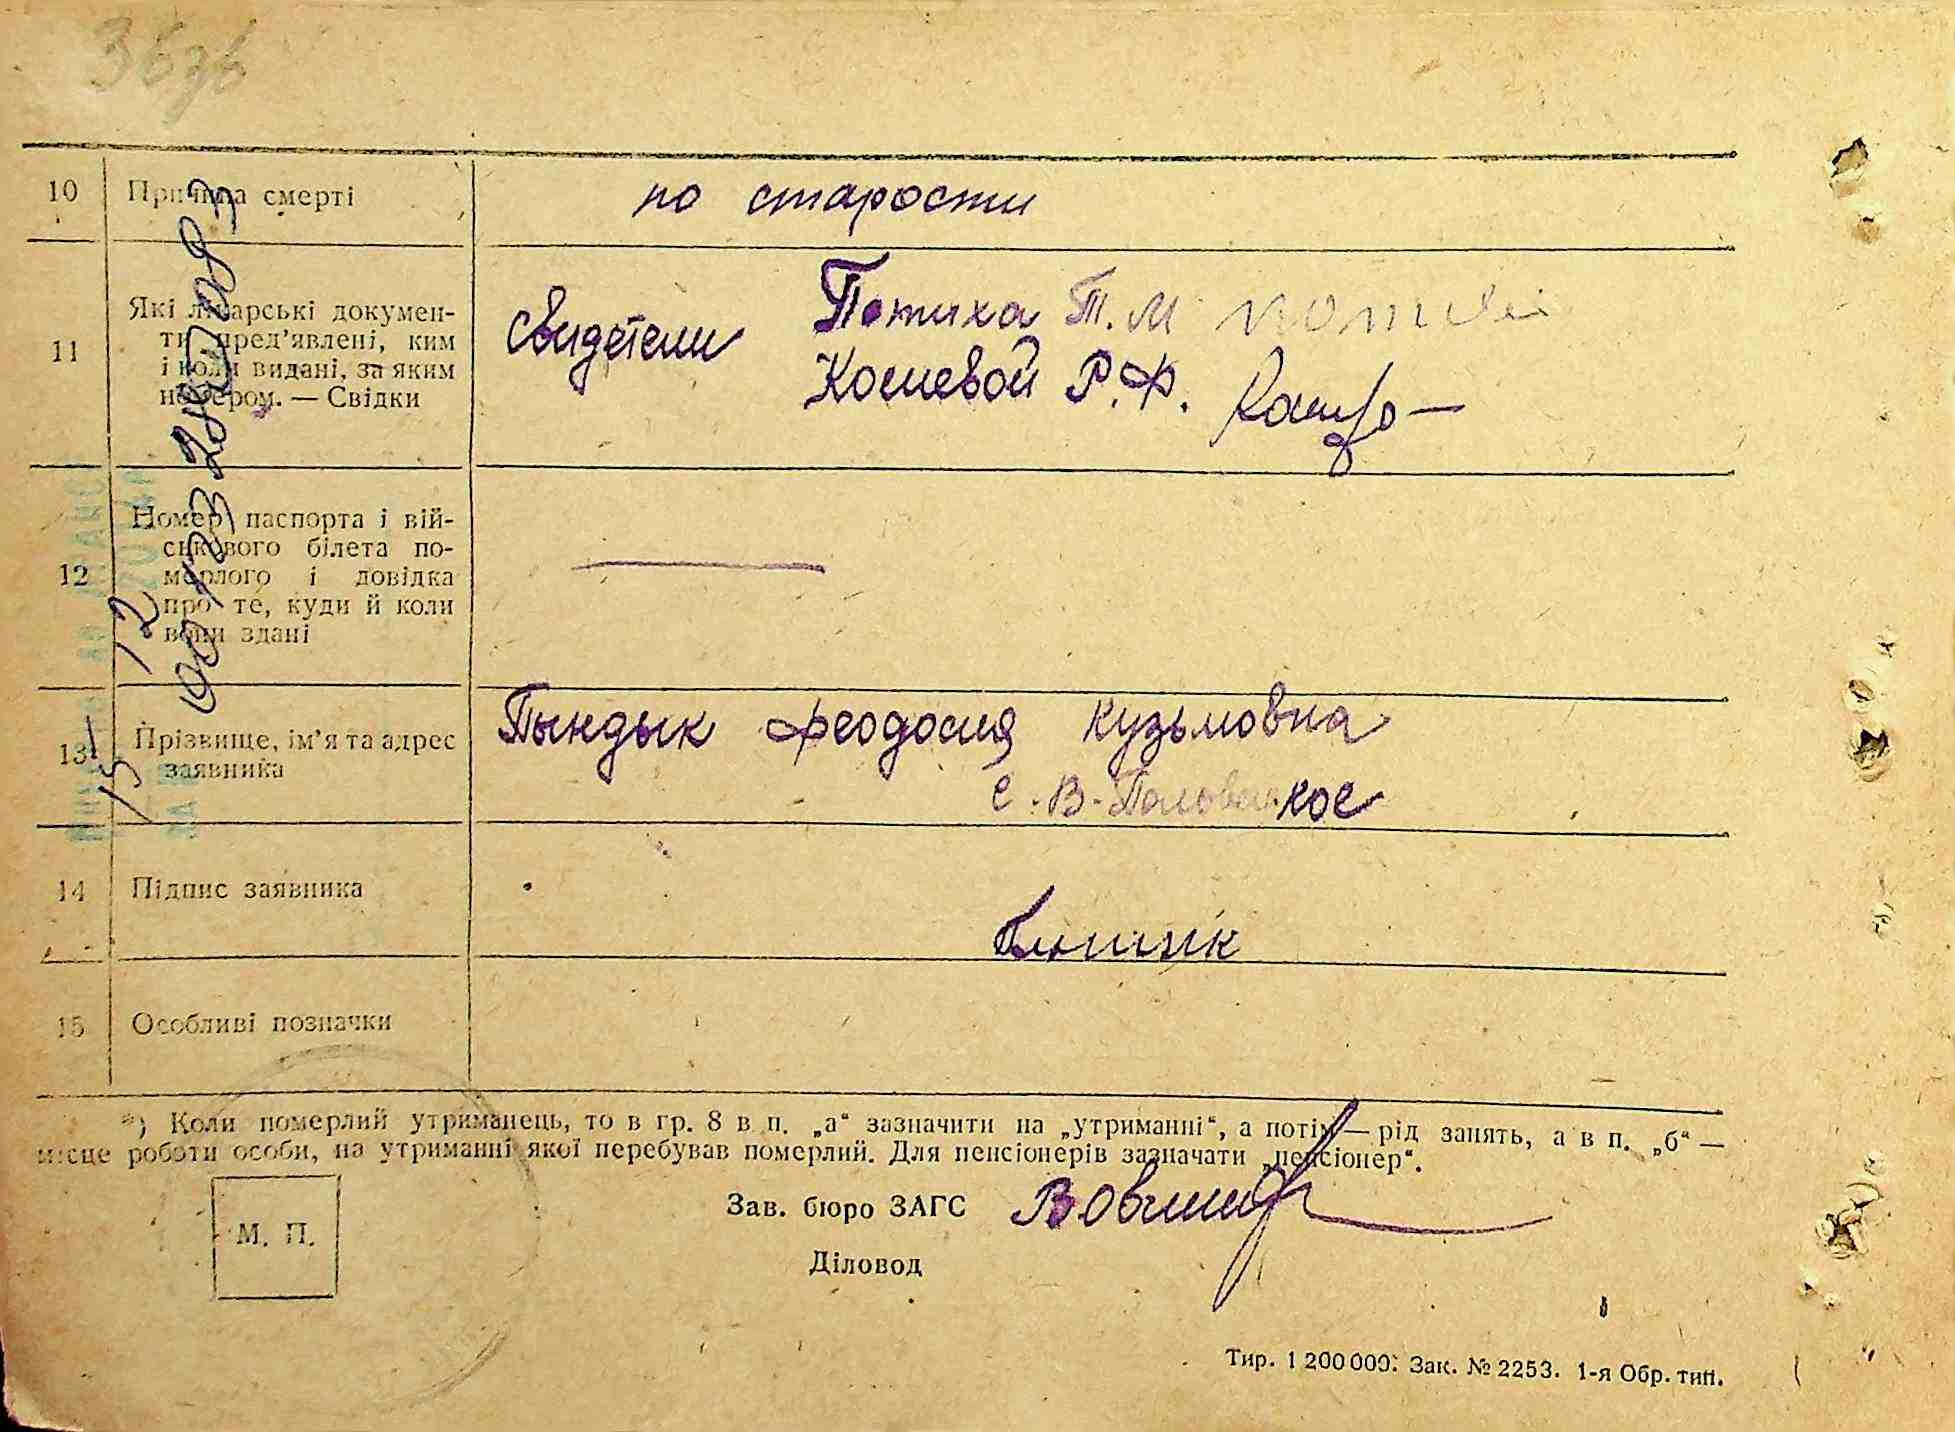 10 Причина смерті
по старости
11 Які лікарські документи пред'явлені, ким і коли видані, за яким номером. — Свідки
Свидетели Потиха Т. М
Кошевой Р. Ф.
12 Номер паспорта і військового білета померлого і довідка про те, куди й коли вони здані
13 Прізвище, ім'я та адрес заявника
Пындык Феодосия Кузьмовна
с. В-Половецкое
14 Підпис заявника
15 Особливі позначки
*) Коли померлий утриманець, то в гр. 8 в п. „а“ зазначити на „утриманні“, а потім — рід занять, а в п. „б“ —
місце роботи особи, на утриманні якої перебував померлий. Для пенсіонерів зазначати „пенсіонер“.
М. П.
Зав. бюро ЗАГС
Діловод
Тир. 1 200 000. Зак. № 2253. 1-я Обр. тип.